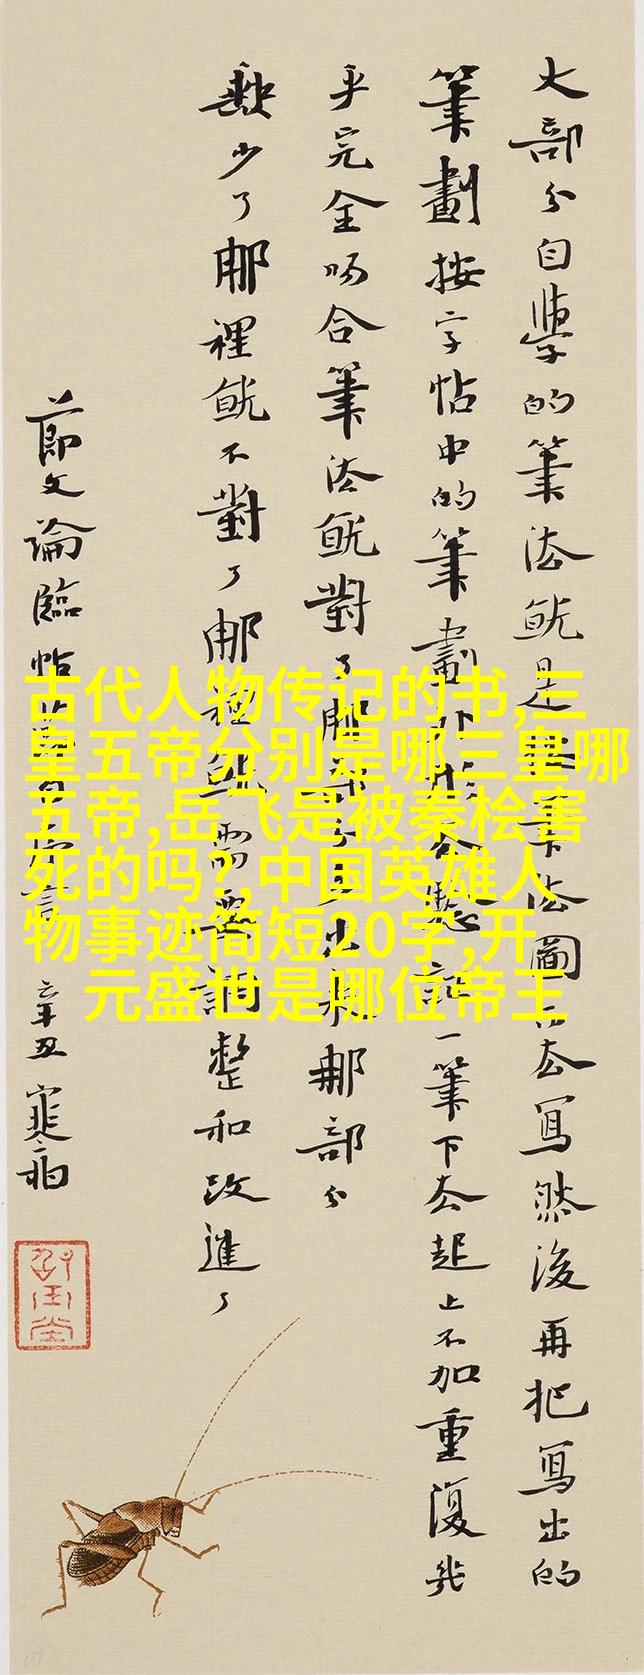 大部分自學的筆法就是筆法圖去寫然後再把寫出的
筆劃按字帖中的筆劃記一筆下去起上不加重復幾
乎完全吻合筆法就對了那出現那部分
少了那裡就不對了那裡就需要調整和改進了
節文論臨帖
辛丑
古代人物传记的书,三
皇五帝分别是哪三皇哪
五帝,岳飞是被秦桧害
死的吗?,中国英雄人
物事迹简短20字,开
元盛世是哪位帝王